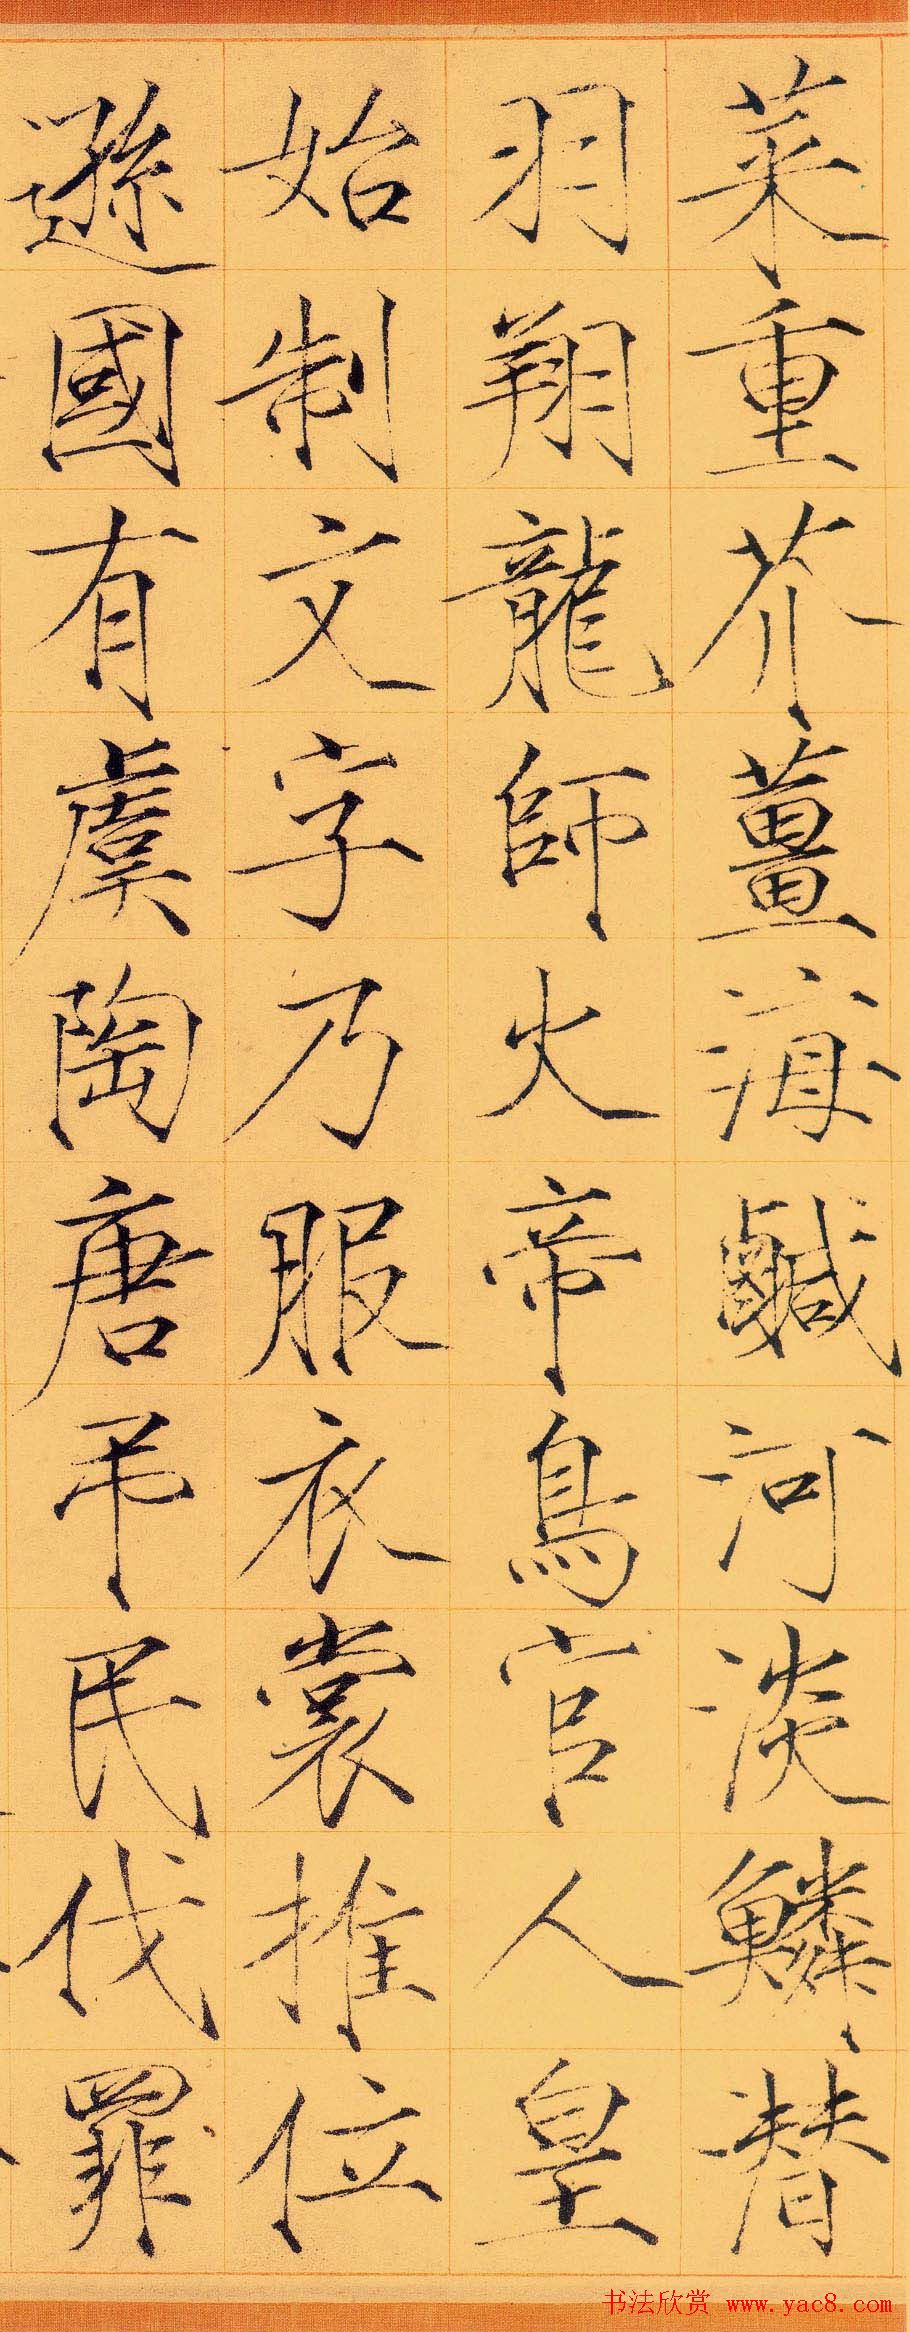 菜重芥薑海鹹河淡鱗潛
羽翔龍師火帝鳥官人皇
始制文字乃服衣裳推位
遜國有虞陶唐弔民伐罪
书法欣赏 www.yac8.com